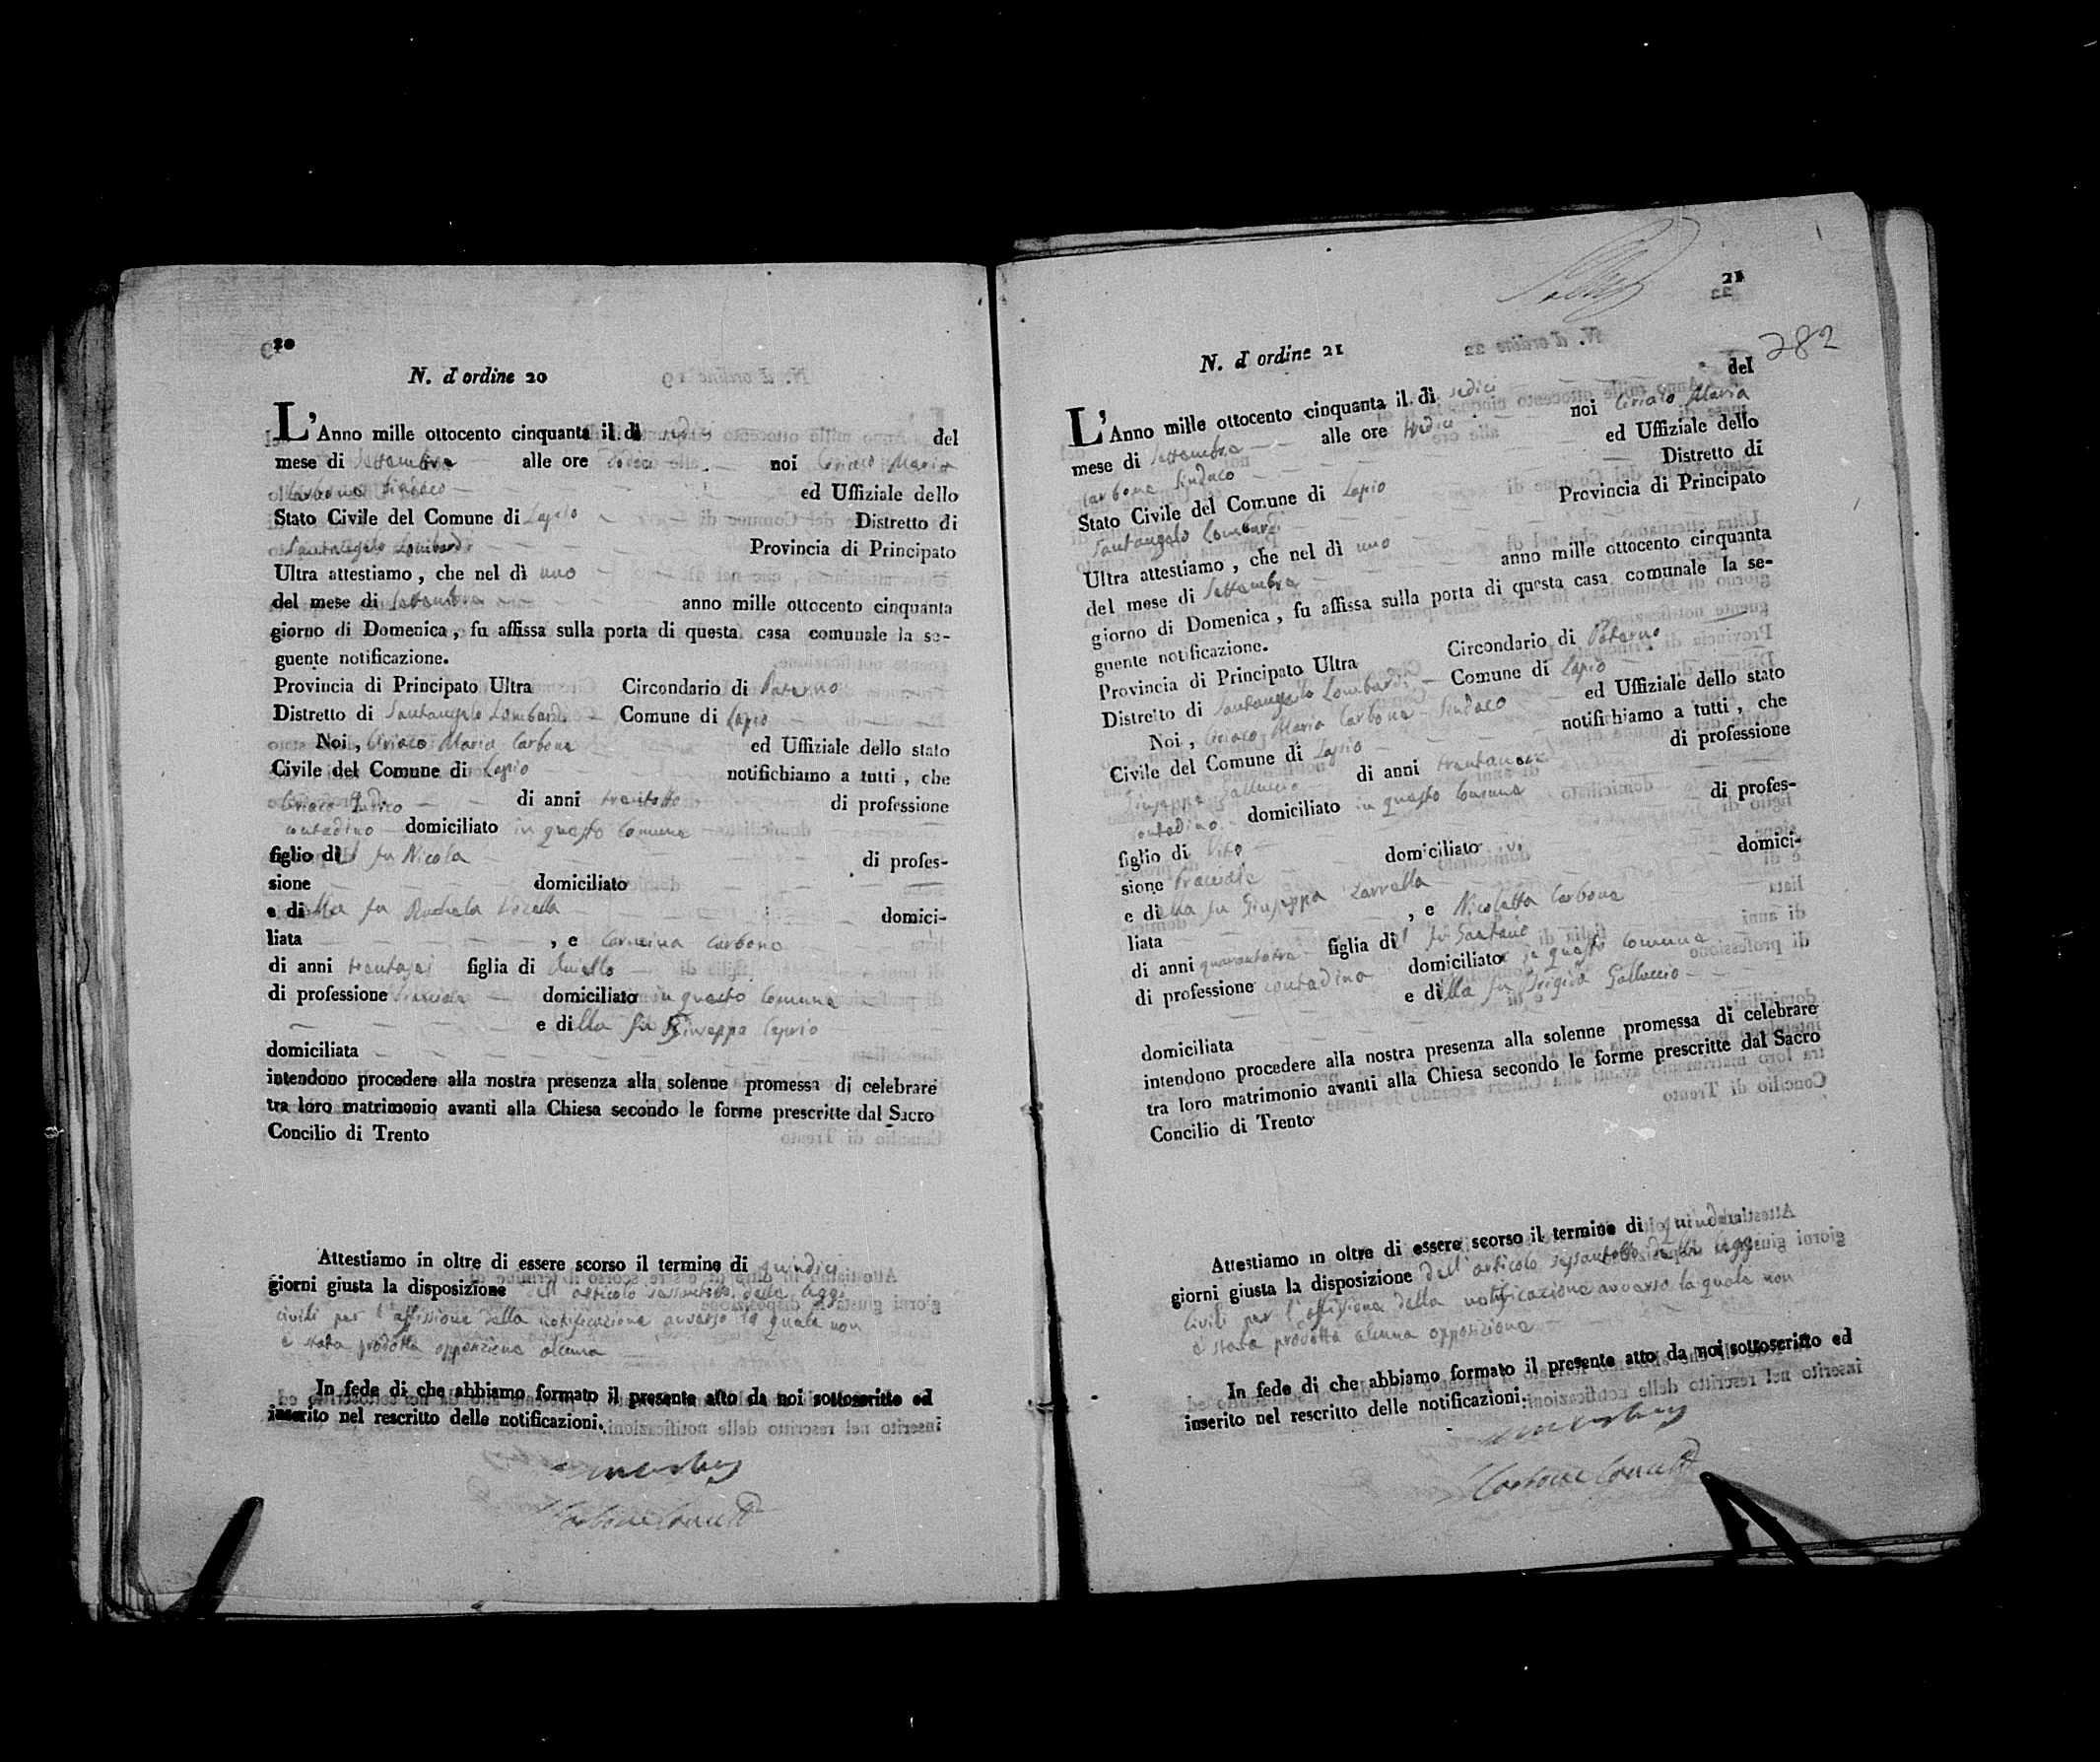 20
N. d'ordine 20
L'Anno mille ottocento cinquanta il dì del
mese di Settembre alle ore noi Ciriaco Maria
Carbone Sindaco ed Uffiziale dello
Stato Civile del Comune di Lapio Distretto di
Santangelo Lombardi Provincia di Principato
Ultra attestiamo, che nel dì uno
del mese di Settembre anno mille ottocento cinquanta
giorno di Domenica, fu affissa sulla porta di questa casa comunale la se-
guente notificazione.
Provincia di Principato Ultra Circondario di Paterno
Distretto di Santangelo Lombardi Comune di Lapio
Noi, Ciriaco Maria Carbone ed Uffiziale dello stato
Civile del Comune di Lapio notifichiamo a tutti, che
Ciriaco di anni trentotto di professione
contadino domiciliato in questo Comune
figlio del fu Nicola di profes-
sione domiciliato
e della fu domici-
liata , e Carmina Carbone
di anni trentasei figlia di Aniello
di professione domiciliato in questo Comune
e della fu Giuseppa Caprio
domiciliata
intendono procedere alla nostra presenza alla solenne promessa di celebrare
tra loro matrimonio avanti alla Chiesa secondo le forme prescritte dal Sacro
Concilio di Trento
Attestiamo in oltre di essere scorso il termine di quindici
giorni giusta la disposizione dell'articolo sessantotto delle leggi
civili per l'affissione della notificazione avverso la quale non
è stata prodotta opposizione alcuna
In fede di che abbiamo formato il presente atto da noi sottoscritto ed
inserito nel rescritto delle notificazioni.
21
282
N. d'ordine 21
L'Anno mille ottocento cinquanta il dì sedici del
mese di Settembre alle ore noi Ciriaco Maria
Carbone Sindaco ed Uffiziale dello
Stato Civile del Comune di Lapio Distretto di
Santangelo Lombardi Provincia di Principato
Ultra attestiamo, che nel dì uno
del mese di Settembre anno mille ottocento cinquanta
giorno di Domenica, fu affissa sulla porta di questa casa comunale la se-
guente notificazione.
Provincia di Principato Ultra Circondario di Paterno
Distretto di Santangelo Lombardi Comune di Lapio
Noi, Ciriaco Maria Carbone Sindaco ed Uffiziale dello stato
Civile del Comune di Lapio notifichiamo a tutti, che
Giuseppe Galluccio di anni trentanove di professione
contadino domiciliato in questo Comune
figlio di Vito di profes-
sione domiciliato ivi
e della fu Giuseppa Zarrella domici-
liata , e Nicoletta Carbone
di anni quarantatre figlia del fu Gaetano
di professione contadina domiciliato in questo Comune
e della fu Brigida Galluccio
domiciliata
intendono procedere alla nostra presenza alla solenne promessa di celebrare
tra loro matrimonio avanti alla Chiesa secondo le forme prescritte dal Sacro
Concilio di Trento
Attestiamo in oltre di essere scorso il termine di quindici
giorni giusta la disposizione dell'articolo sessantotto delle leggi
Civili per l'affissione della notificazione avverso la quale non
è stata prodotta alcuna opposizione
In fede di che abbiamo formato il presente atto da noi sottoscritto ed
inserito nel rescritto delle notificazioni.